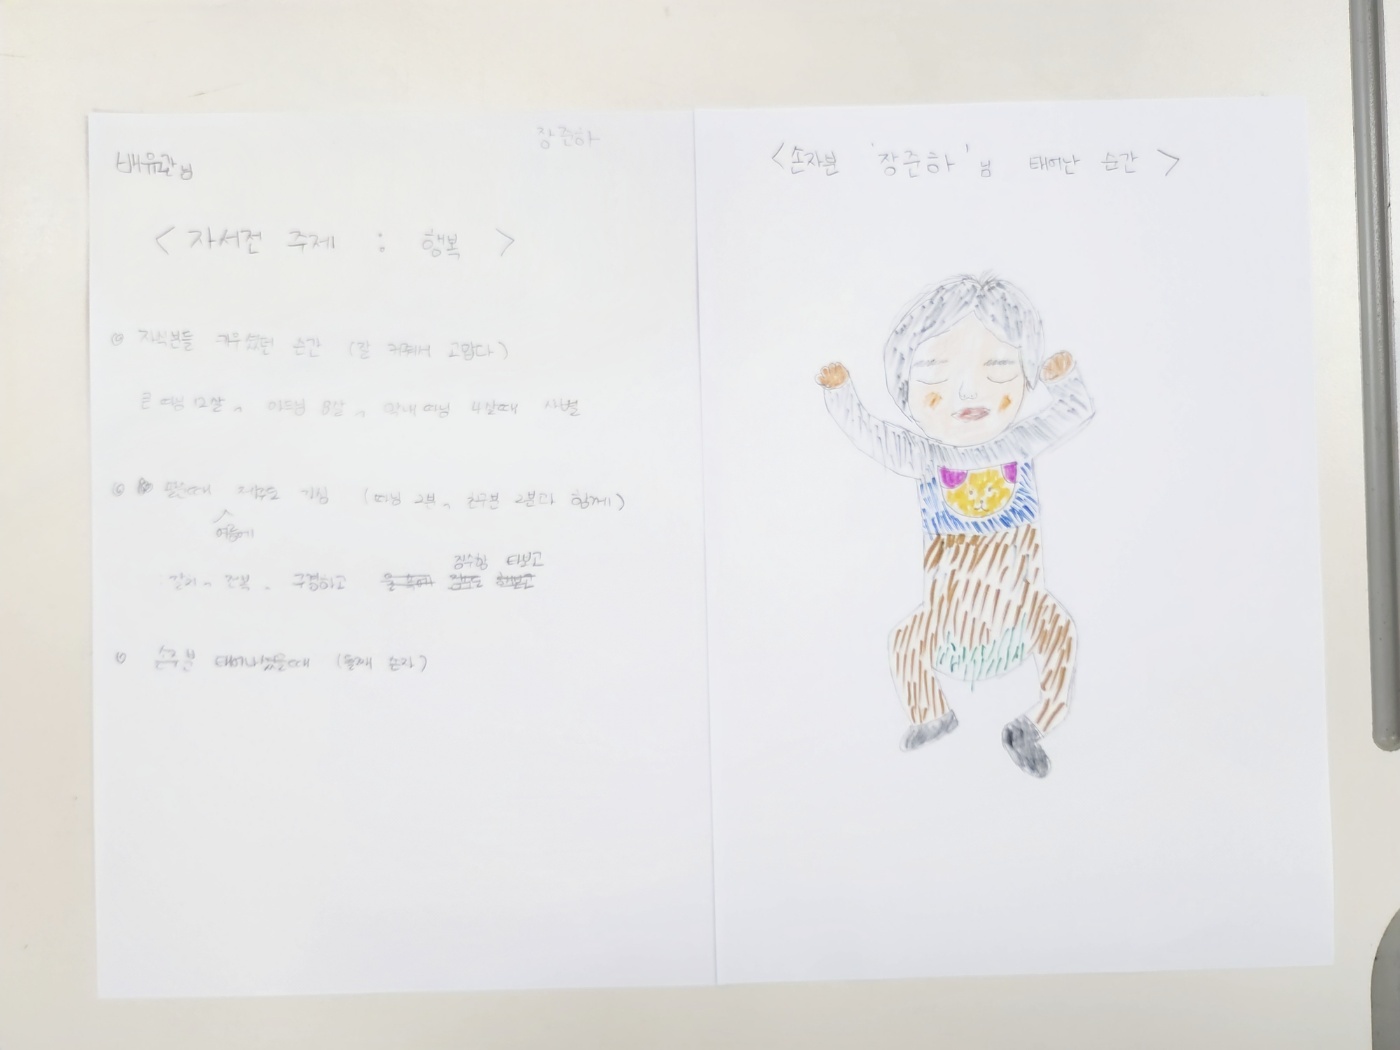 장준하
배유관님
< 자서전 주제 : 행복 >
자식분들 키우셨던 순간 (잘 커줘서 고맙다)
큰 따님 12살, 아드님 8살, 막내 따님 4살때 사별
젊은때 제주도 기심 (따님 2분, 친구분 2분과 함께)
여름에
잠수함 타보고
갈치, 전복, 구경하고
손주분 태어나셨을때 (둘째 손자)
<손자분 '장준하'님 태어난 순간>